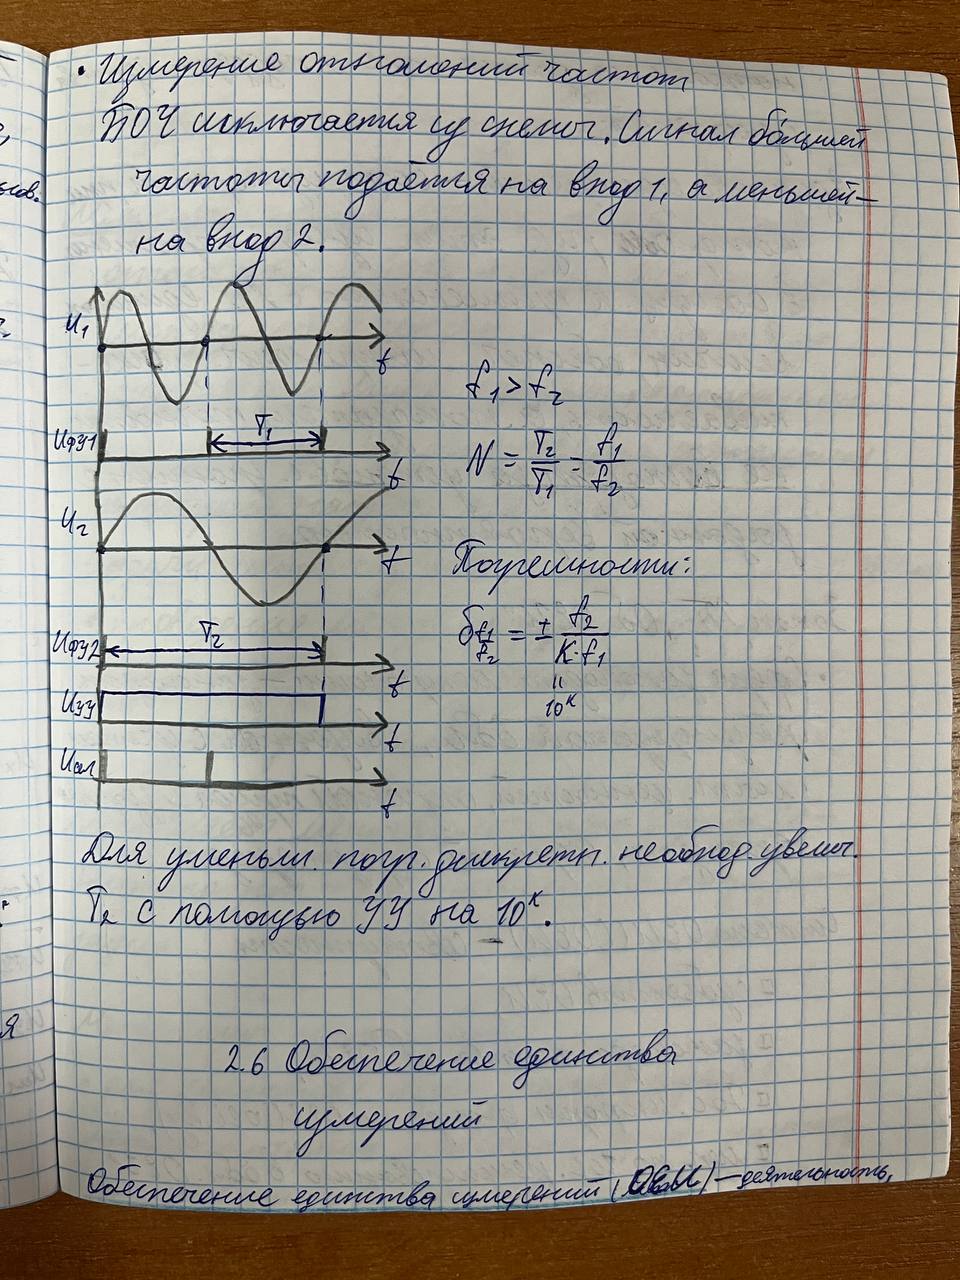 • Измерение отношений частот
БОЧ исключается из схемы. Сигнал бо́льшей
частоты подаётся на вход 1, а меньшей –
на вход 2.
U₁
t
f₁ > f₂
Uфу1
T₁
t
N = T₂/T₁ = f₁/f₂
U₂
t
Погрешности:
δ f₁/f₂ = ± f₂/(K·f₁)
Uфу2
T₂
t
"
10ᴷ
Uуу
t
Uсел
t
Для уменьш. погр. дискретн. необход. увелич.
T₂ с помощью УУ на 10ᴷ.
2.6 Обеспечение единства
измерений
Обеспечение единства измерений (ОЕИ) – деятельность,